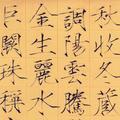 秋收冬藏
調陽雲騰
金生麗水
巨闕珠稱